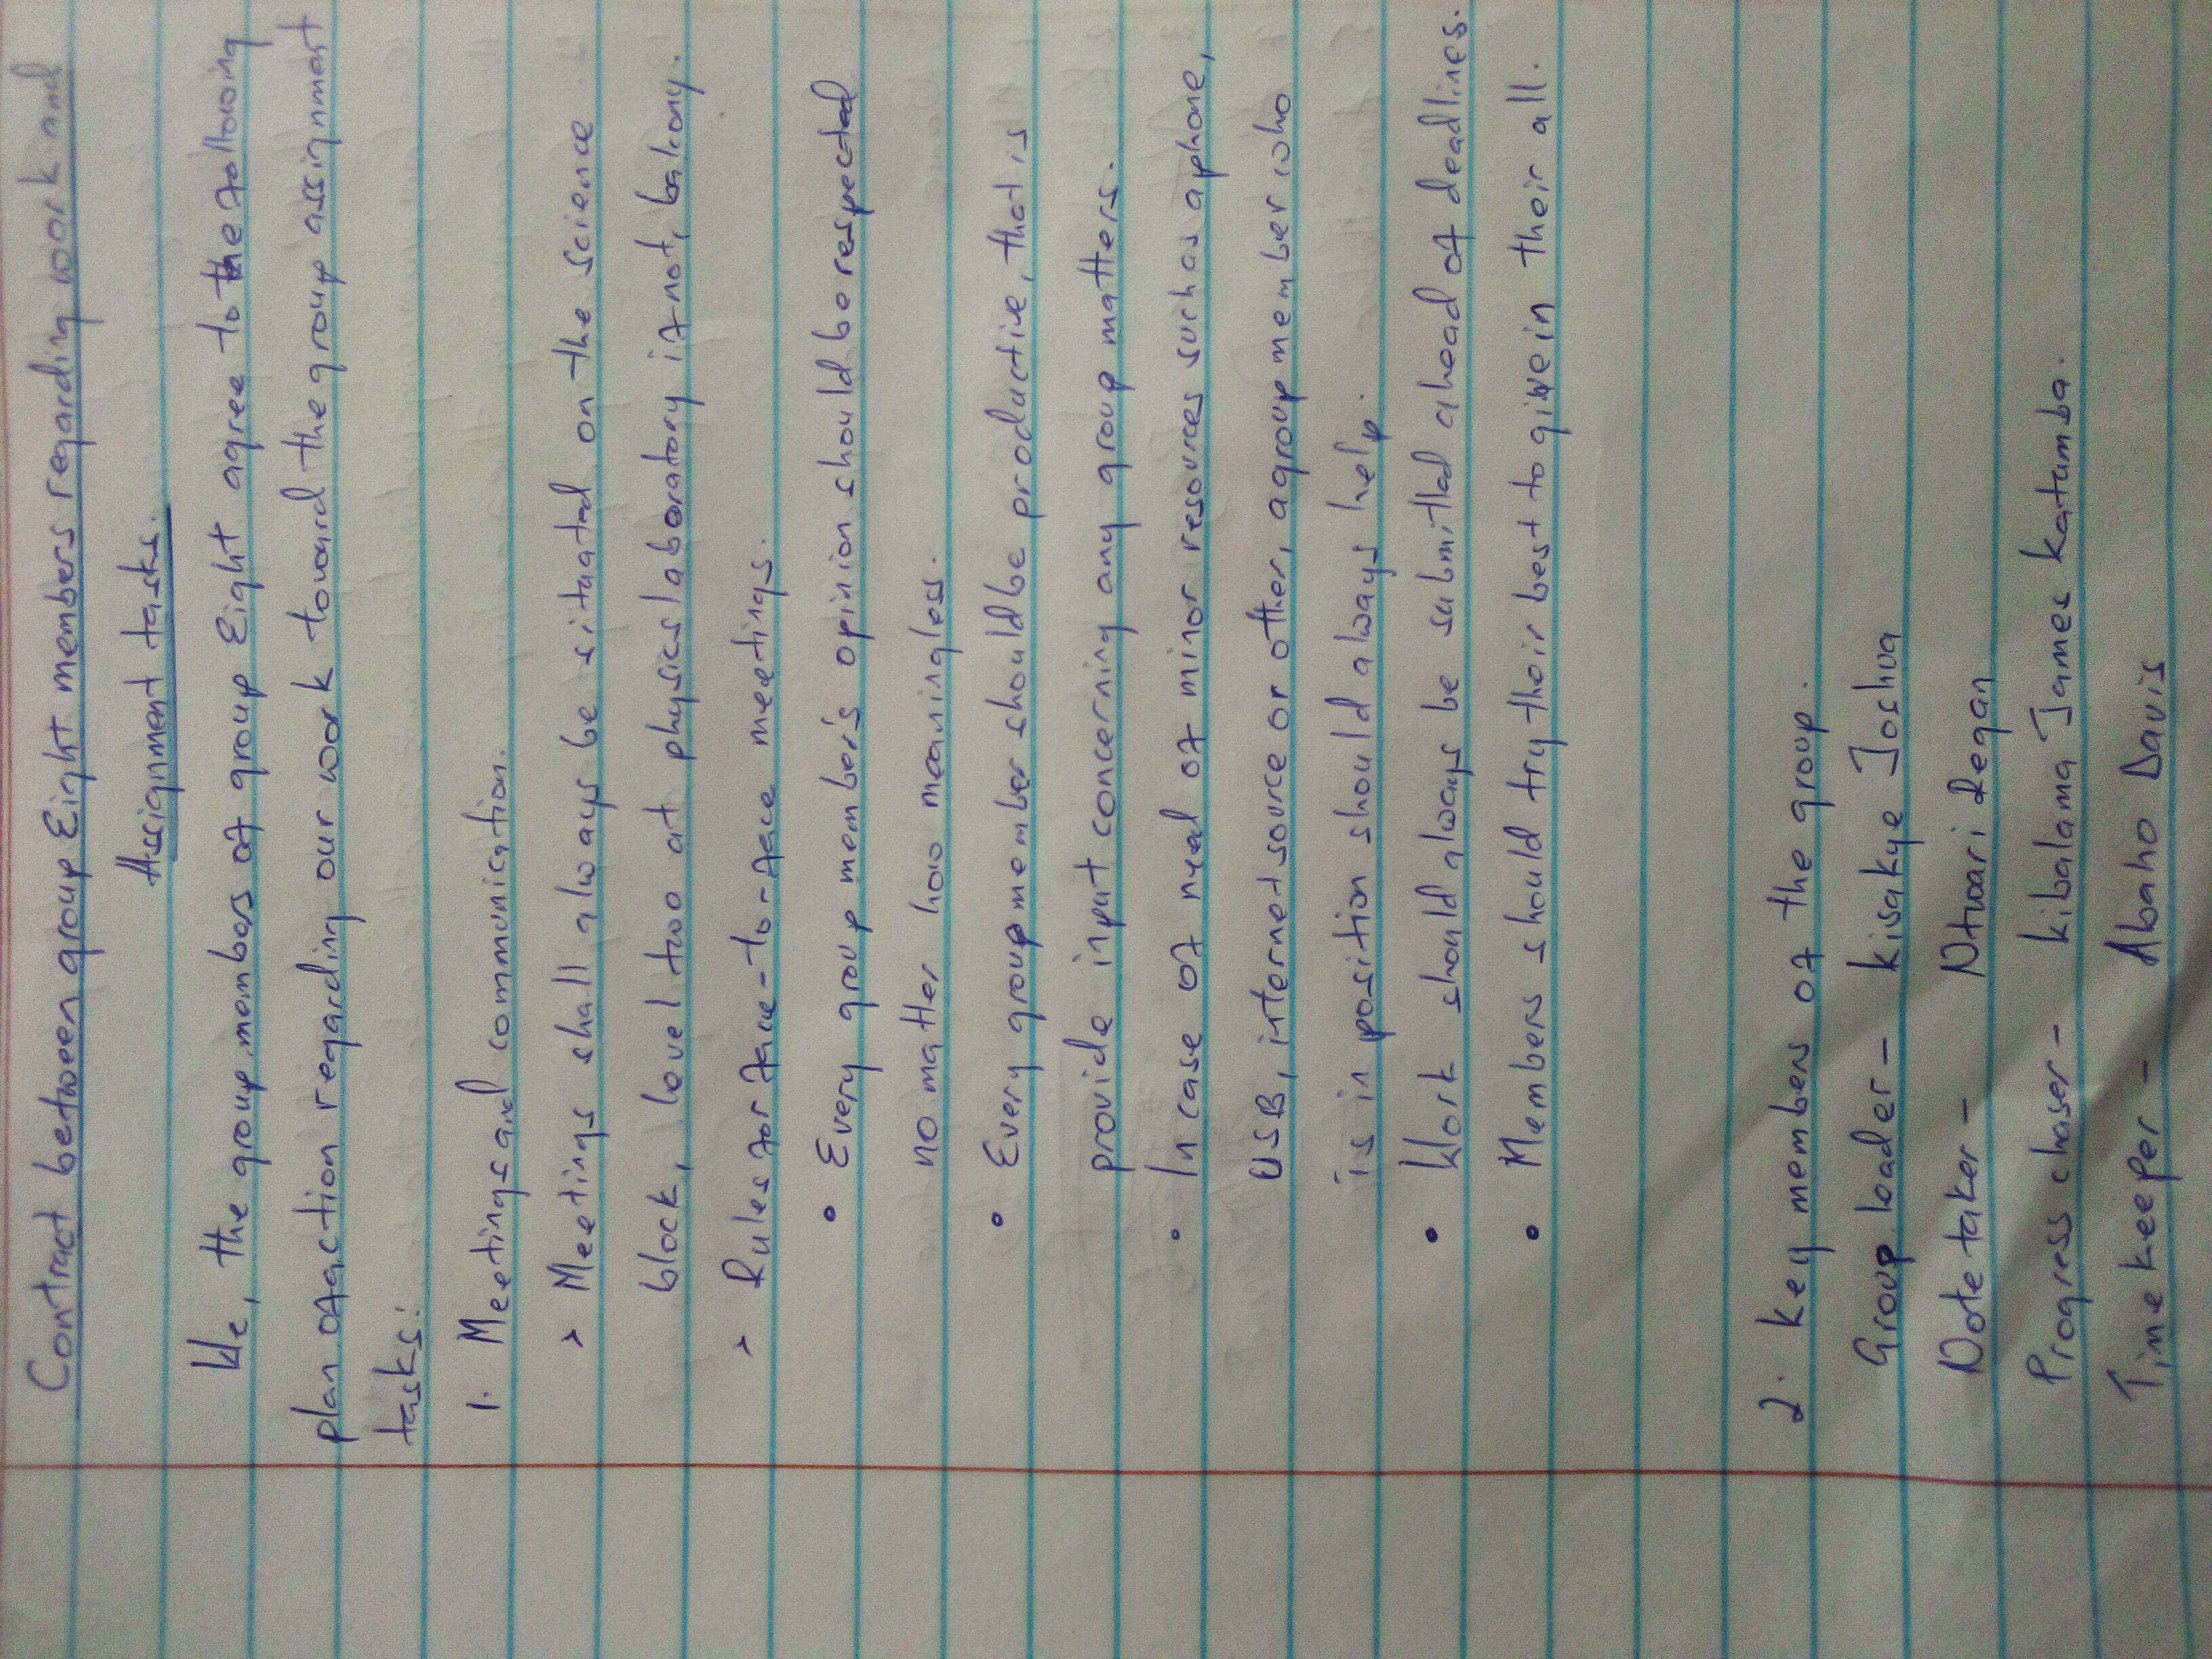 Contract between group Eight members regarding work and
Assignment tasks.
We, the group members of group Eight agree to the following
plan of action regarding our work toward the group assignment
tasks:
1. Meetings and communication.
> Meetings shall always be situated on the science
block, level two at physics laboratory if not, balcony.
> Rules for face-to-face meetings.
• Every group member's opinion should be respected
no matter how meaningless.
• Every group member should be productive, that is
provide input concerning any group matters.
• In case of need of minor resources such as a phone,
USB, internet source or other, a group member who
is in position should always help.
• Work should always be submitted ahead of deadlines.
• Members should try their best to give in their all.
2. Key members of the group.
Group leader - Kisakye Joshua
Note taker - Ntwari Regan
Progress chaser - Kibalama James Katumba.
Time keeper - Abaho Davis